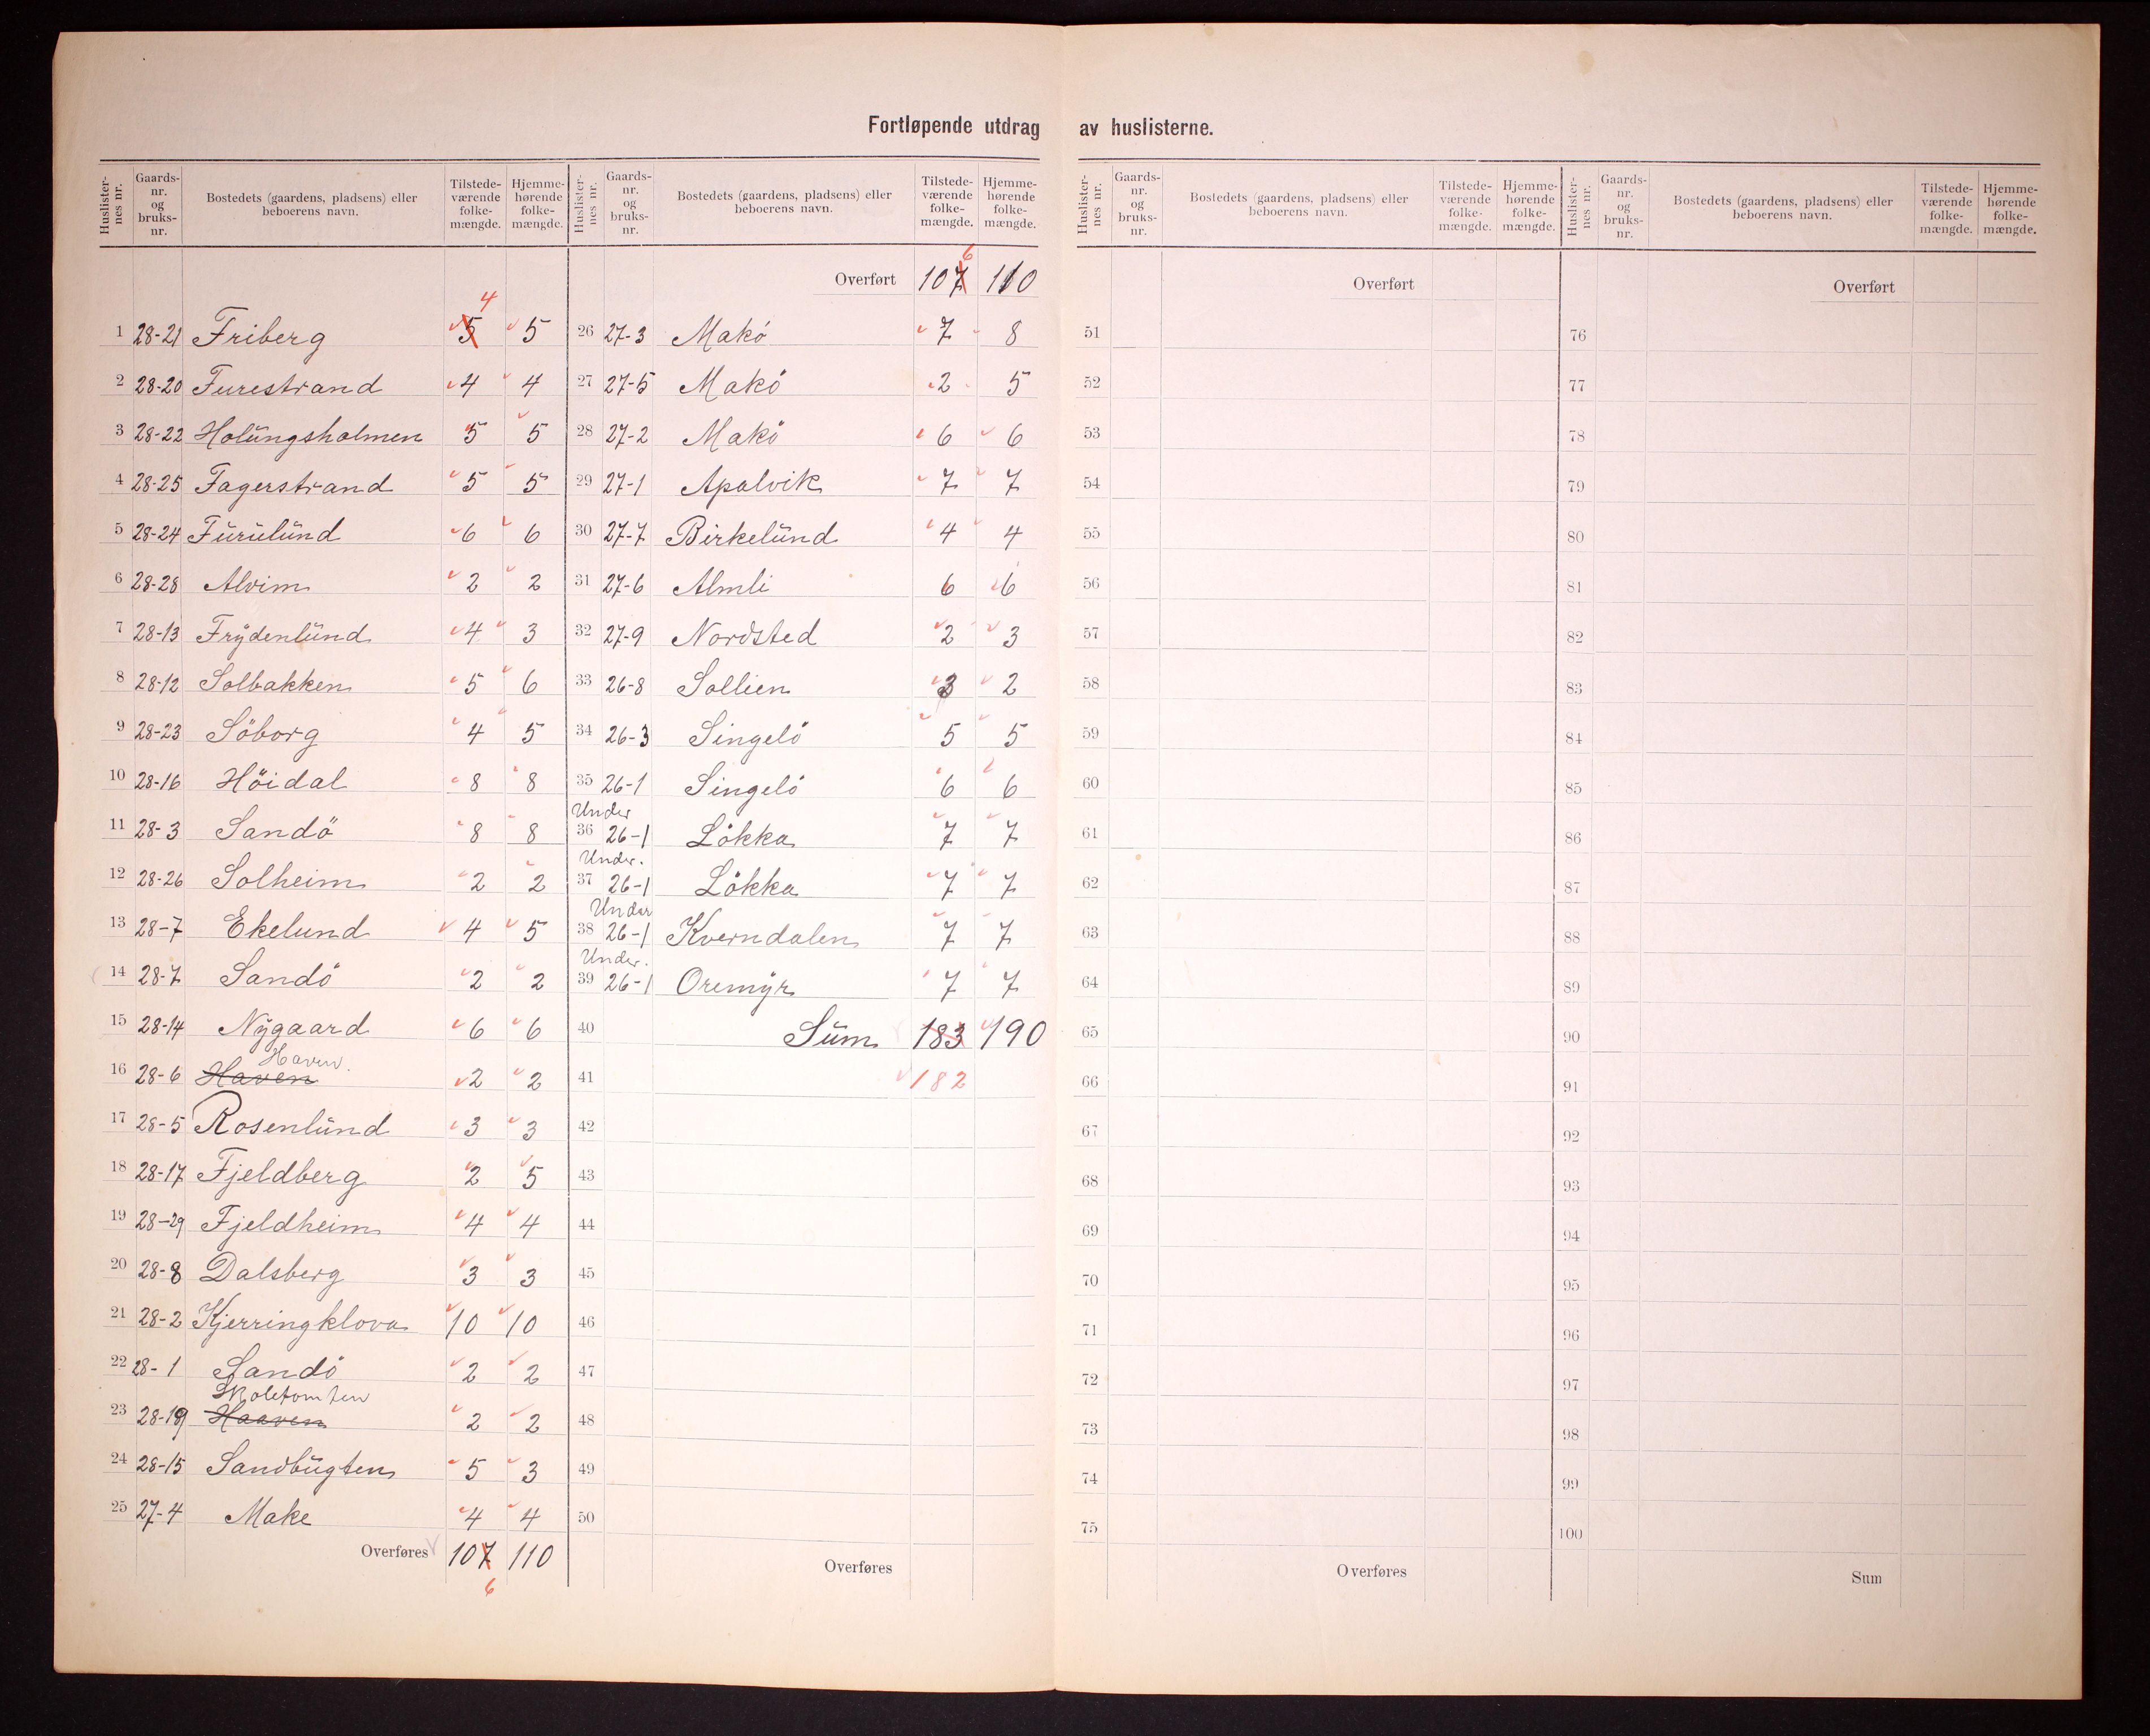 Fortløpende utdrag av huslisterne.
Huslister-nes nr. Gaards-nr. og bruks-nr. Bostedets (gaardens, pladsens) eller beboerens navn. Tilstede-værende folke-mængde. Hjemme-hørende folke-mængde.
4
1 28-21 Friberg 5 5
2 28-20 Furestrand 4 4
3 28-22 Holüngsholmen 5 5
4 28-25 Fagerstrand 5 5
5 28-24 Fürülünd 6 6
6 28-28 Alvim 2 2
7 28-13 Frÿdenlünd 4 3
8 28-12 Solbakken 5 6
9 28-23 Söborg 4 5
10 28-16 Höidal 8 8
11 28-3 Sandö 8 8
12 28-26 Solheim 2 2
13 28-7 Ekelund 4 5
14 28-7 Sandö 2 2
15 28-14 Nÿgaard 6 6
Haven
16 28-6 Haven 2 2
17 28-5 Rosenlünd 3 3
18 28-17 Fjeldberg 2 5
19 28-29 Fjeldheim 4 4
20 28-8 Dalsberg 3 3
21 28-2 Kjerringklova 10 10
22 28-1 Sandö 2 2
Skoletomten
23 28-19 Haaven 2 2
24 28-15 Sandbügten 5 3
25 27-4 Make 4 4
Overføres 107 110
6
Huslister-nes nr. Gaards-nr. og bruks-nr. Bostedets (gaardens, pladsens) eller beboerens navn. Tilstede-værende folke-mængde. Hjemme-hørende folke-mængde.
6
Overført 107 110
26 27-3 Makö 7 8
27 27-5 Makö 2 5
28 27-2 Makö 6 6
29 27-1 Apalvik 7 7
30 27-7 Birkelünd 4 4
31 27-6 Almli 6 6
32 27-9 Nordsted 2 3
33 26-8 Sollien 3 2
34 26-3 Singelö 5 5
35 26-1 Singelö 6 6
Under
36 26-1 Lökka 7 7
Under.
37 26-1 Lökka 7 7
Under
38 26-1 Kverndalen 7 7
Under.
39 26-1 Oremÿr 7 7
40 Süm 183 190
41 182
42
43
44
45
46
47
48
49
50
Overføres
Huslister-nes nr. Gaards-nr. og bruks-nr. Bostedets (gaardens, pladsens) eller beboerens navn. Tilstede-værende folke-mængde. Hjemme-hørende folke-mængde.
Overført
51
52
53
54
55
56
57
58
59
60
61
62
63
64
65
66
67
68
69
70
71
72
73
74
75
Overføres
Huslister-nes nr. Gaards-nr. og bruks-nr. Bostedets (gaardens, pladsens) eller beboerens navn. Tilstede-værende folke-mængde. Hjemme-hørende folke-mængde.
Overført
76
77
78
79
80
81
82
83
84
85
86
87
88
89
90
91
92
93
94
95
96
97
98
99
100
Sum